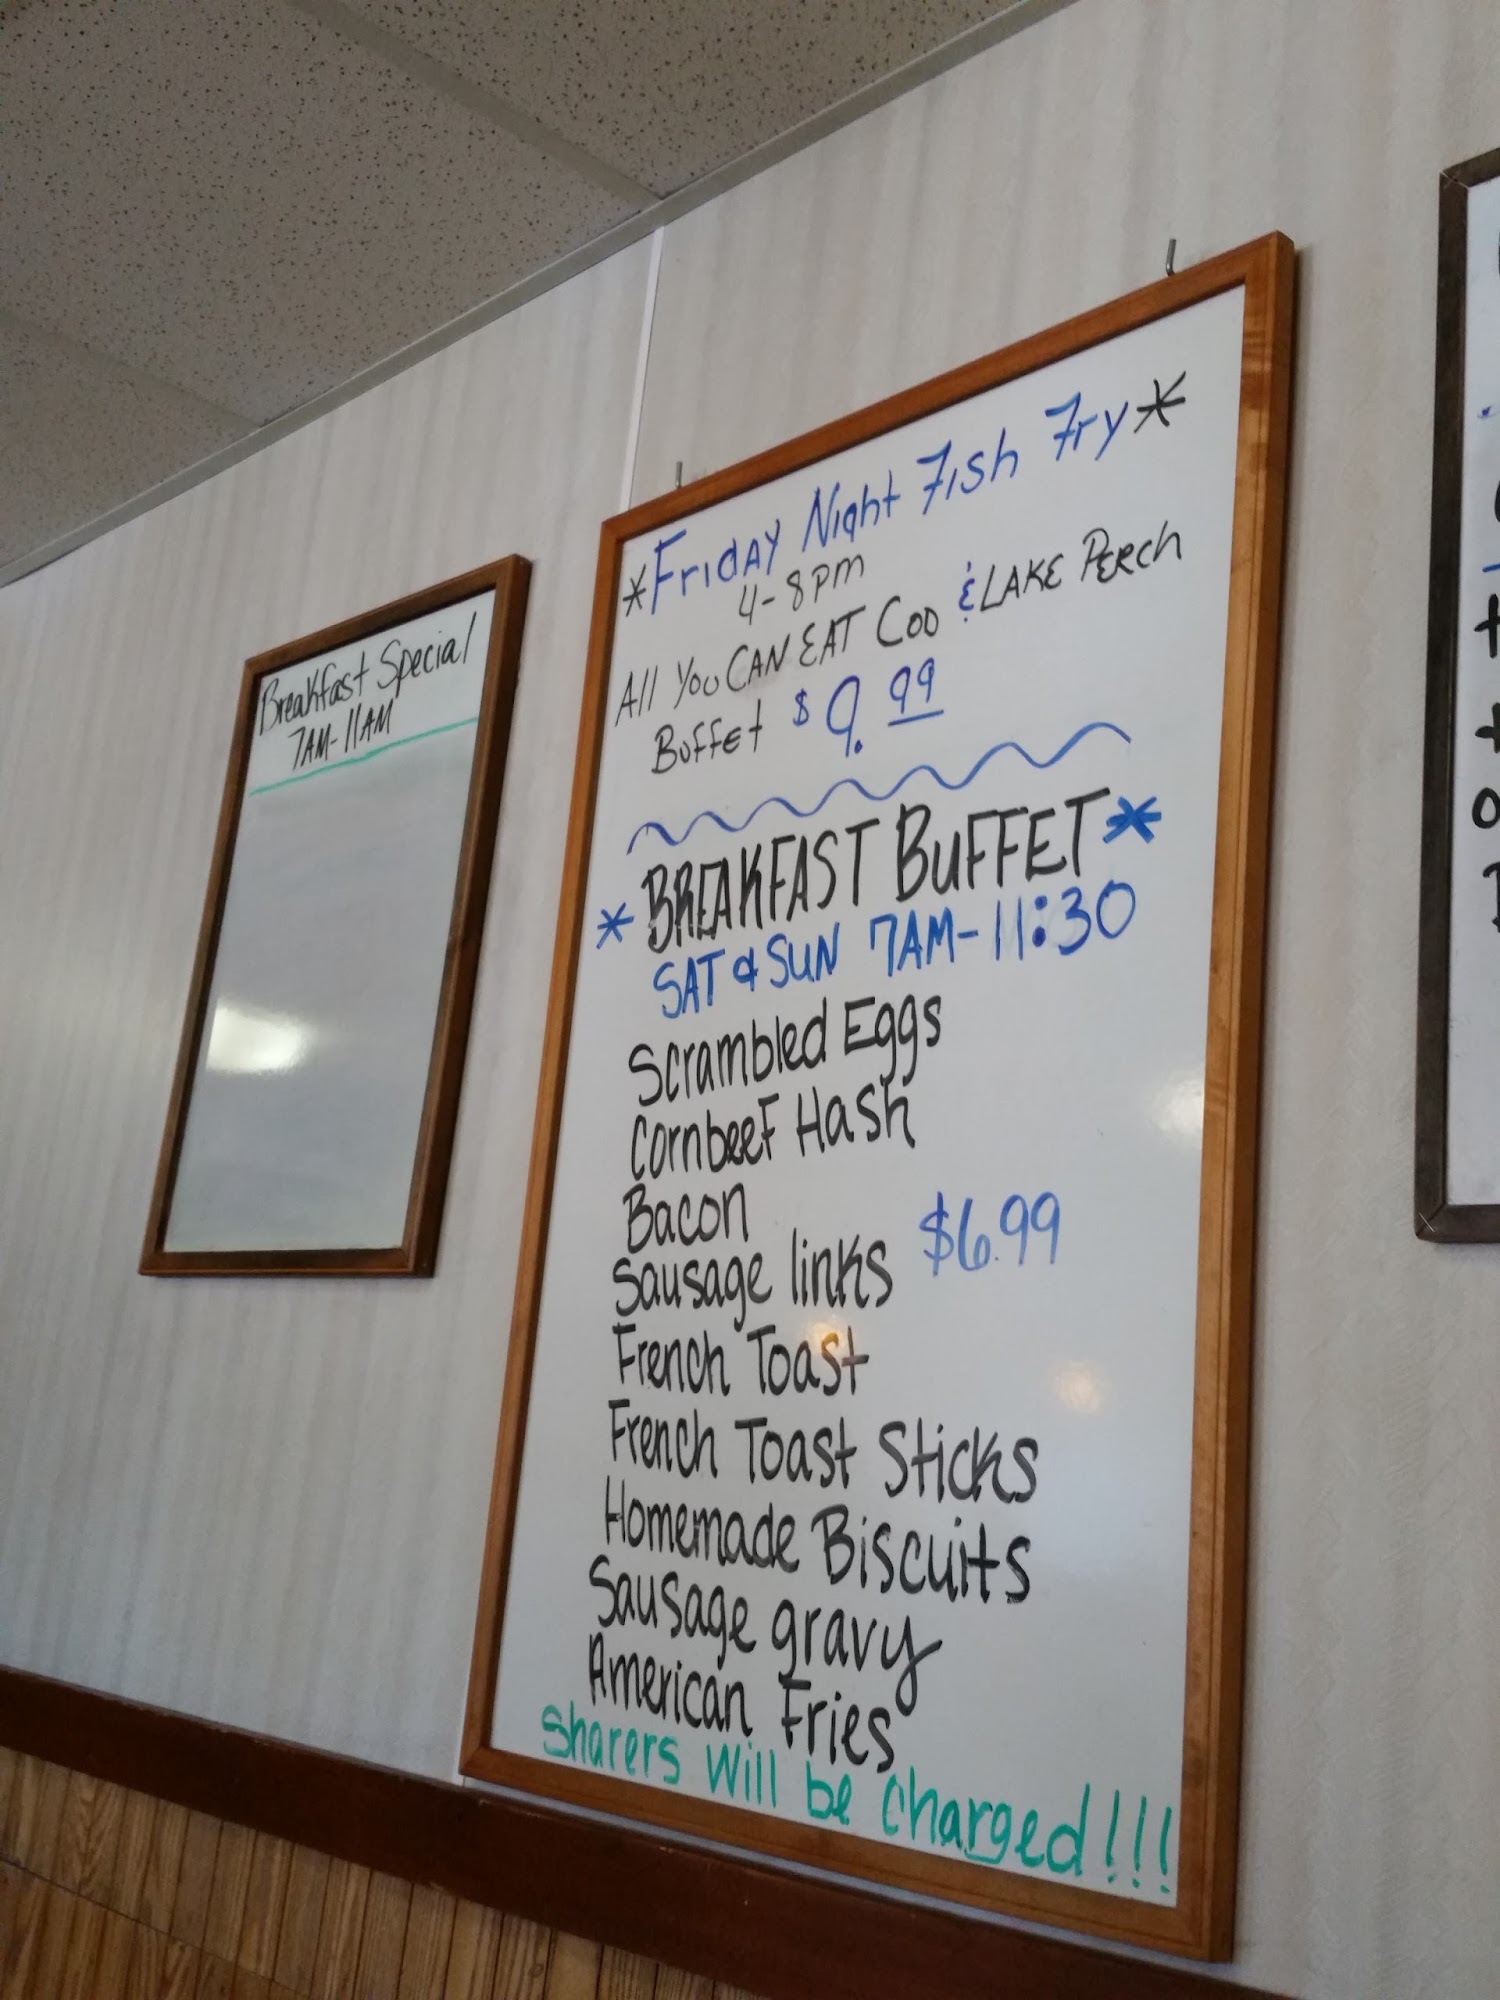 Breakfast Special
7AM-11AM
*Friday Night Fish Fry*
4-8pm
All You CAN EAT COD & LAKE PERCH
Buffet $9.99
*BREAKFAST BUFFET*
SAT & SUN 7AM-11:30
Scrambled Eggs
Cornbeef Hash
Bacon
Sausage links $6.99
French Toast
French Toast Sticks
Homemade Biscuits
Sausage gravy
American Fries
Sharers will be charged!!!